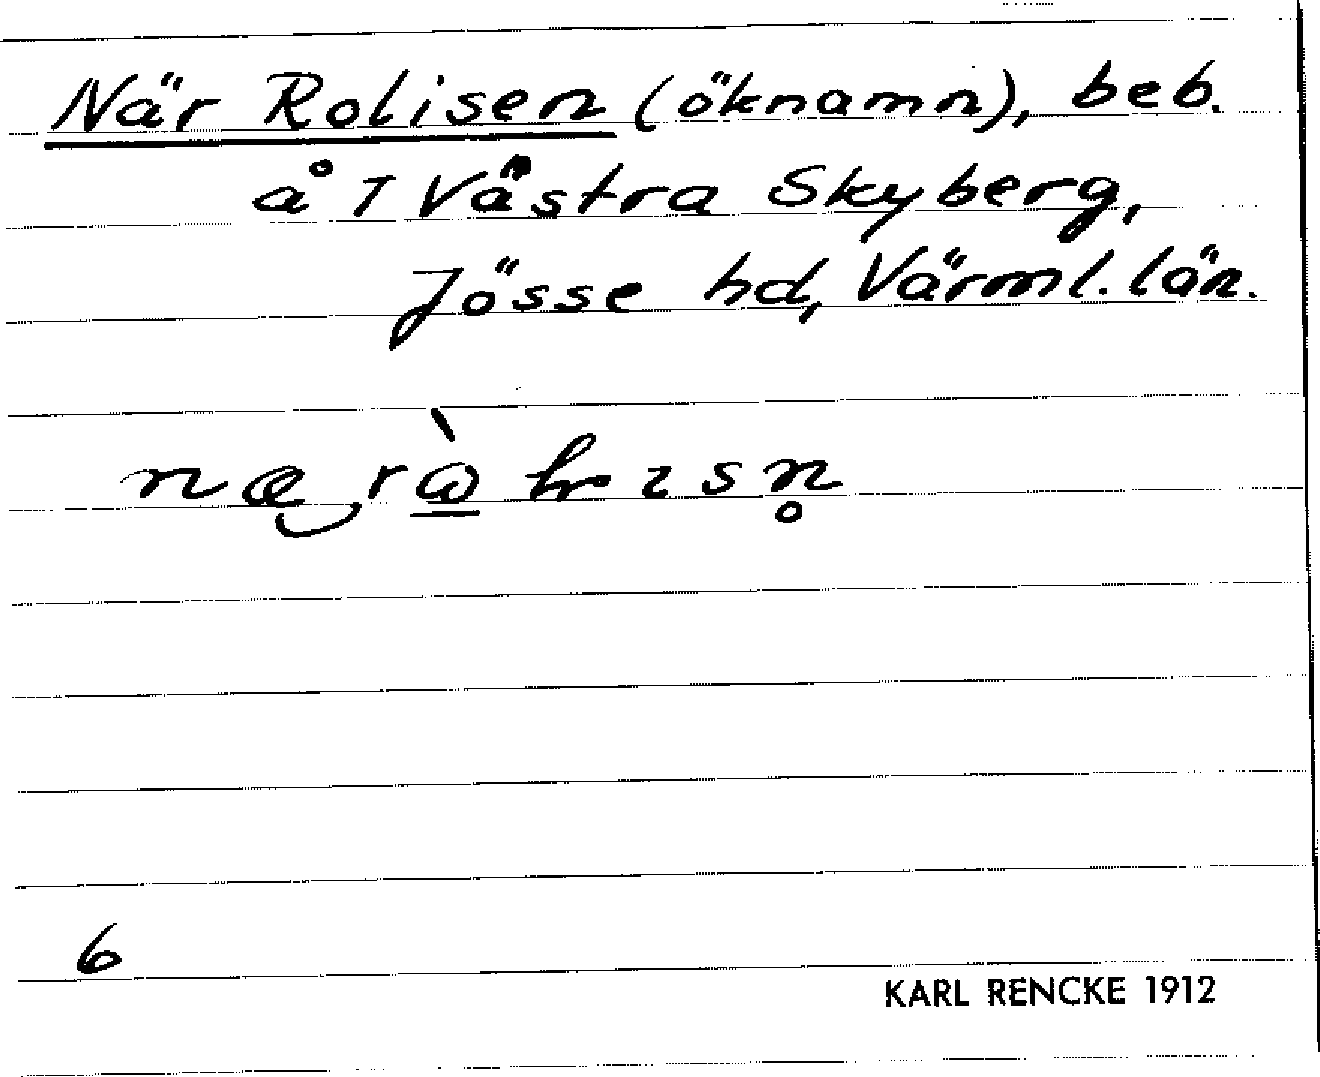 När Rolisen (öknamn), beb.
å 7 Västra Skyberg,
Jösse hd, Värml. län.
6
KARL RENCKE 1912